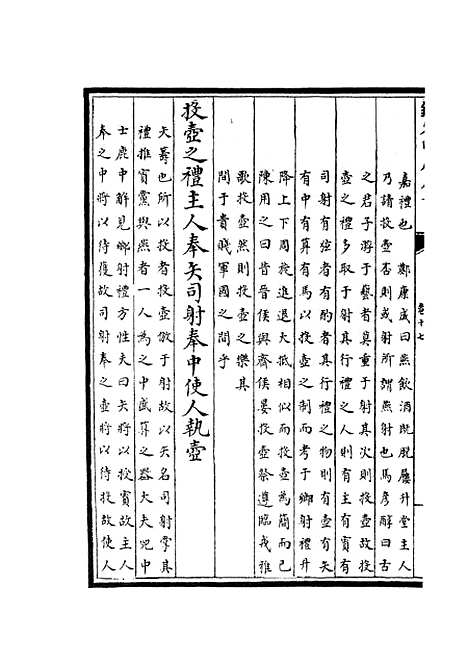 嘉禮也　鄭康成曰燕飲酒既脫屨升堂主人
乃請投壺否則或射所謂燕射也馬彥醇曰古
之君子游于藝者莫重于射其次則投壺故投
壺之禮多取于射其行禮之人則有主有賓有
司射有弦者有酌者其行禮之物則有壺有矢
有中有算有馬以投壺之制而考于鄉射禮升
降上下周旋進退大抵相似而投壺為簡而已
陳用之曰昔晉侯與齊侯晏投壺祭遵臨戎雅
歌投壺然則投壺之樂其
間于貴賤軍國之間乎
投壺之禮主人奉矢司射奉中使人執壺
矢籌也所以投者投壺倣于射故以矢名司射掌其
禮推賓黨與燕者一人為之中盛算之器大夫兕中
士鹿中解見鄉射禮方性夫曰矢將以授賓故主人
奉之中將以待獲故司射奉之壺將以待投故使人
卷十七